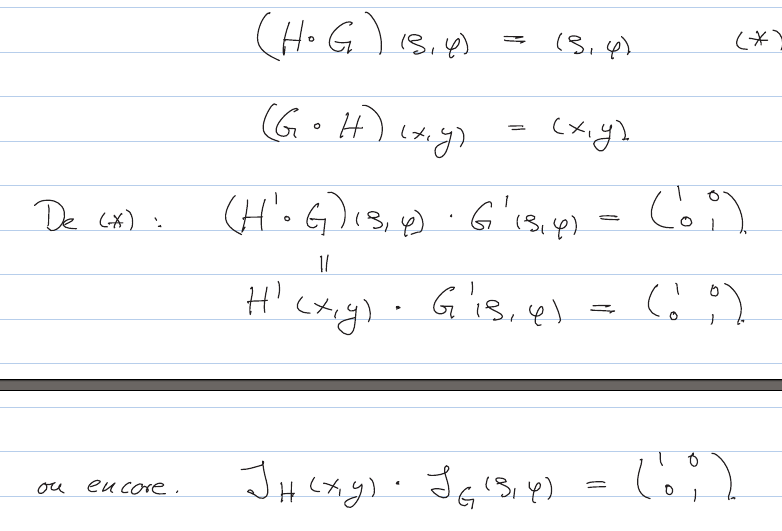 (H∘G)(ρ,φ) = (ρ,φ) (*)
(G∘H)(x,y) = (x,y).
De (*) : (H'∘G)(ρ,φ) · G'(ρ,φ) = (1 0 0 1).
||
H'(x,y) · G'(ρ,φ) = (1 0 0 1).
ou encore. J_H(x,y) · J_G(ρ,φ) = (1 0 0 1).